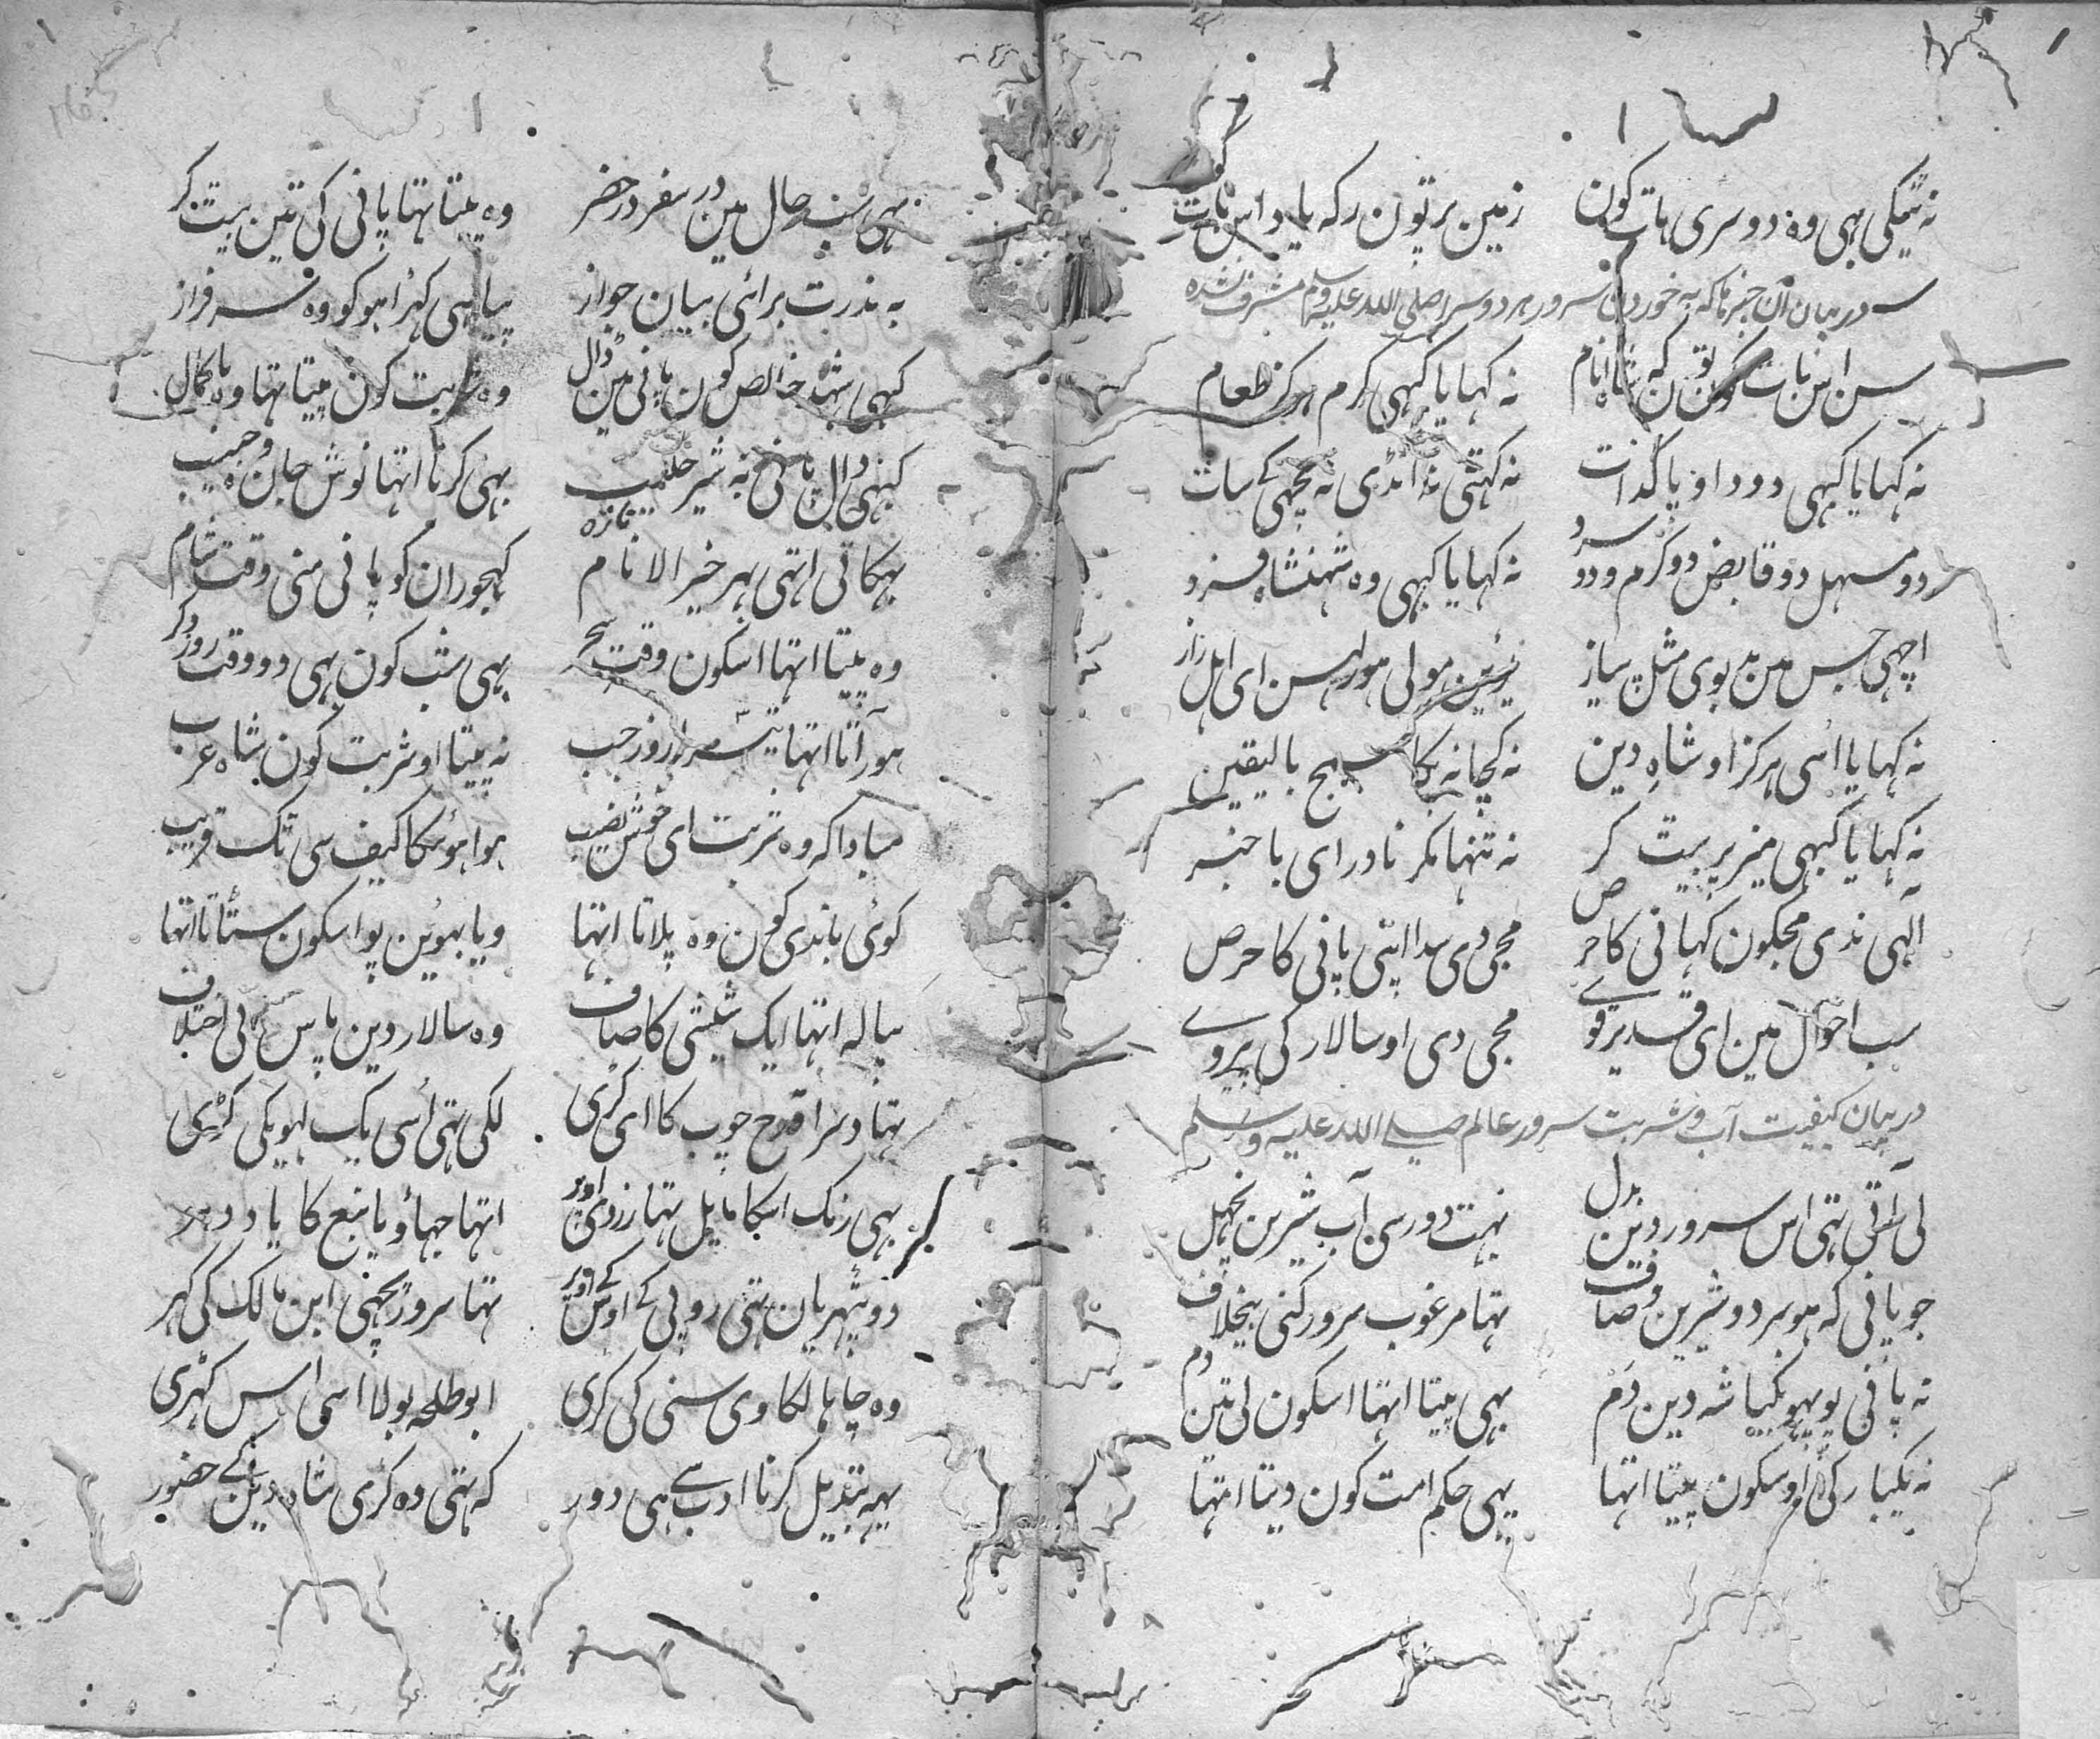 نہ تیکی بہی وہ دوسری ہات کون زمین پر تون رکہ یاد اس بات کون
در بیان آن چیزہا کہ بہ خوردن سرور ہر دو سرا صلی اللہ علیہ وسلم مشرف نشدہ
سن اس بات کون تو کہ شاہ انام نہ کہایا کبہی کرم ہرکز طعام
نہ کہایا کبہی دود او پاکذات نہ کہٹی نہ انڈی نہ مچہی کے سات
دو مسہل دو قابض دو کرم و دو سرد نہ کہایا کبہی وہ شہنشاہ فرد
اچہی جس میں بوی مثل پیاز مولی ہور لہسن ای اہل راز
نہ کہایا اُسی ہرکز او شاہِ دین نہ کچا نہ پکا سمج بالیقین
نہ کہایا کبہی میز پر بیت کر نہ تنہا مکر نادر ای باخبر
الہی ندی مجکون کہانی کا حرص مجی دی سدا اپنی پانی کا حرص
سب احوال میں ای قدیر قوے مجی دی او سالار کی پیروے
در بیان کیفیت آب و شربت سرور عالم صلے اللہ علیہ وسلم
لی آتی تہی اس سرور دین بدل بہت دور سی آب شیرین
جو پانی کہ ہو سرد و شیرین و صاف تہا مرغوب سرور کنی بیخلاف
نہ پانی پو پہونکیا شہ دین دَم بہی پیتا اتہا اسکون لی تین دم
نہ یکبارکی اوسکون پیتا اتہا یہی حکم امت کون دیتا اتہا
بہی سب حال میں در سفر در حضر وہ پیتا تہا پانی کی تین بیت کر
بہ ندرت برائی بیان جواز پیا ہی کہڑا ہو کو وہ سرفراز
کبہی شہد خالص کون پانی میں ڈال وہ شربت کون پیتا تہا وہ باکمال
کبہی ڈال پانی بہ شیر حلیب تازہ بہی کرتا اتہا نوش جان وہ حبیب
بہکاتی اتہی بہر خیر الانام کہجوران کو پانی منی وقت شام
وہ پیتا اتہا اسکون وقت سحر بہی شب کون بہی دو وقت روز دکر
ہور آتا اتہا تیسرا روز جب نہ پیتا او شربت کون شاہ عرب
مبادا کہ وہ شربت ای خوش نصیب ہوا ہوئکا کیف سی تک قریب
کوئی باندی کون وہ پلاتا اتہا ویا بہوئین پو اسکون سٹاتا اتہا
پیالہ اتہا ایک شیشی کا صاف وہ سالار دین پاس بی اختلاف
تہا دسرا قدح چوب کا ای کری لکی تہی اُسی یک لہویکی کڑی
بہی رنک اسکا مایل تہا زردی اوپر اتہا جہاؤ یا نبع کا یاد دہر
دو تہریان تہی روپی کے اوس کے اوپر تہا سرور پچہی ابن مالک کی کہر
وہ چاہا لکاوی سنی کی کری ابوطلحہ بولا اسی اس کہڑی
یہہ تبدیل کرنا ادب سے ہی دور کہ تہی وہ کڑی شاہ دین کے حضور